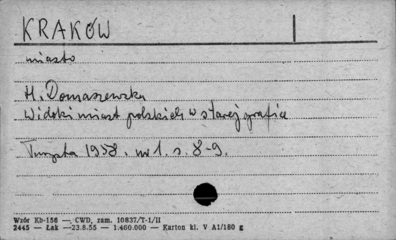 KRAKÓW
miasto
H. Domaszewska
Widoki miast polskich w starej grafice
Turysta 1958. nr 1. s. 8-9.
Wzór Kb-156 — CWD, zam. 10837/T-1/II
2445 — Łak —23.8.55 — 1.400.000 — Karton kl. V A1/180 g